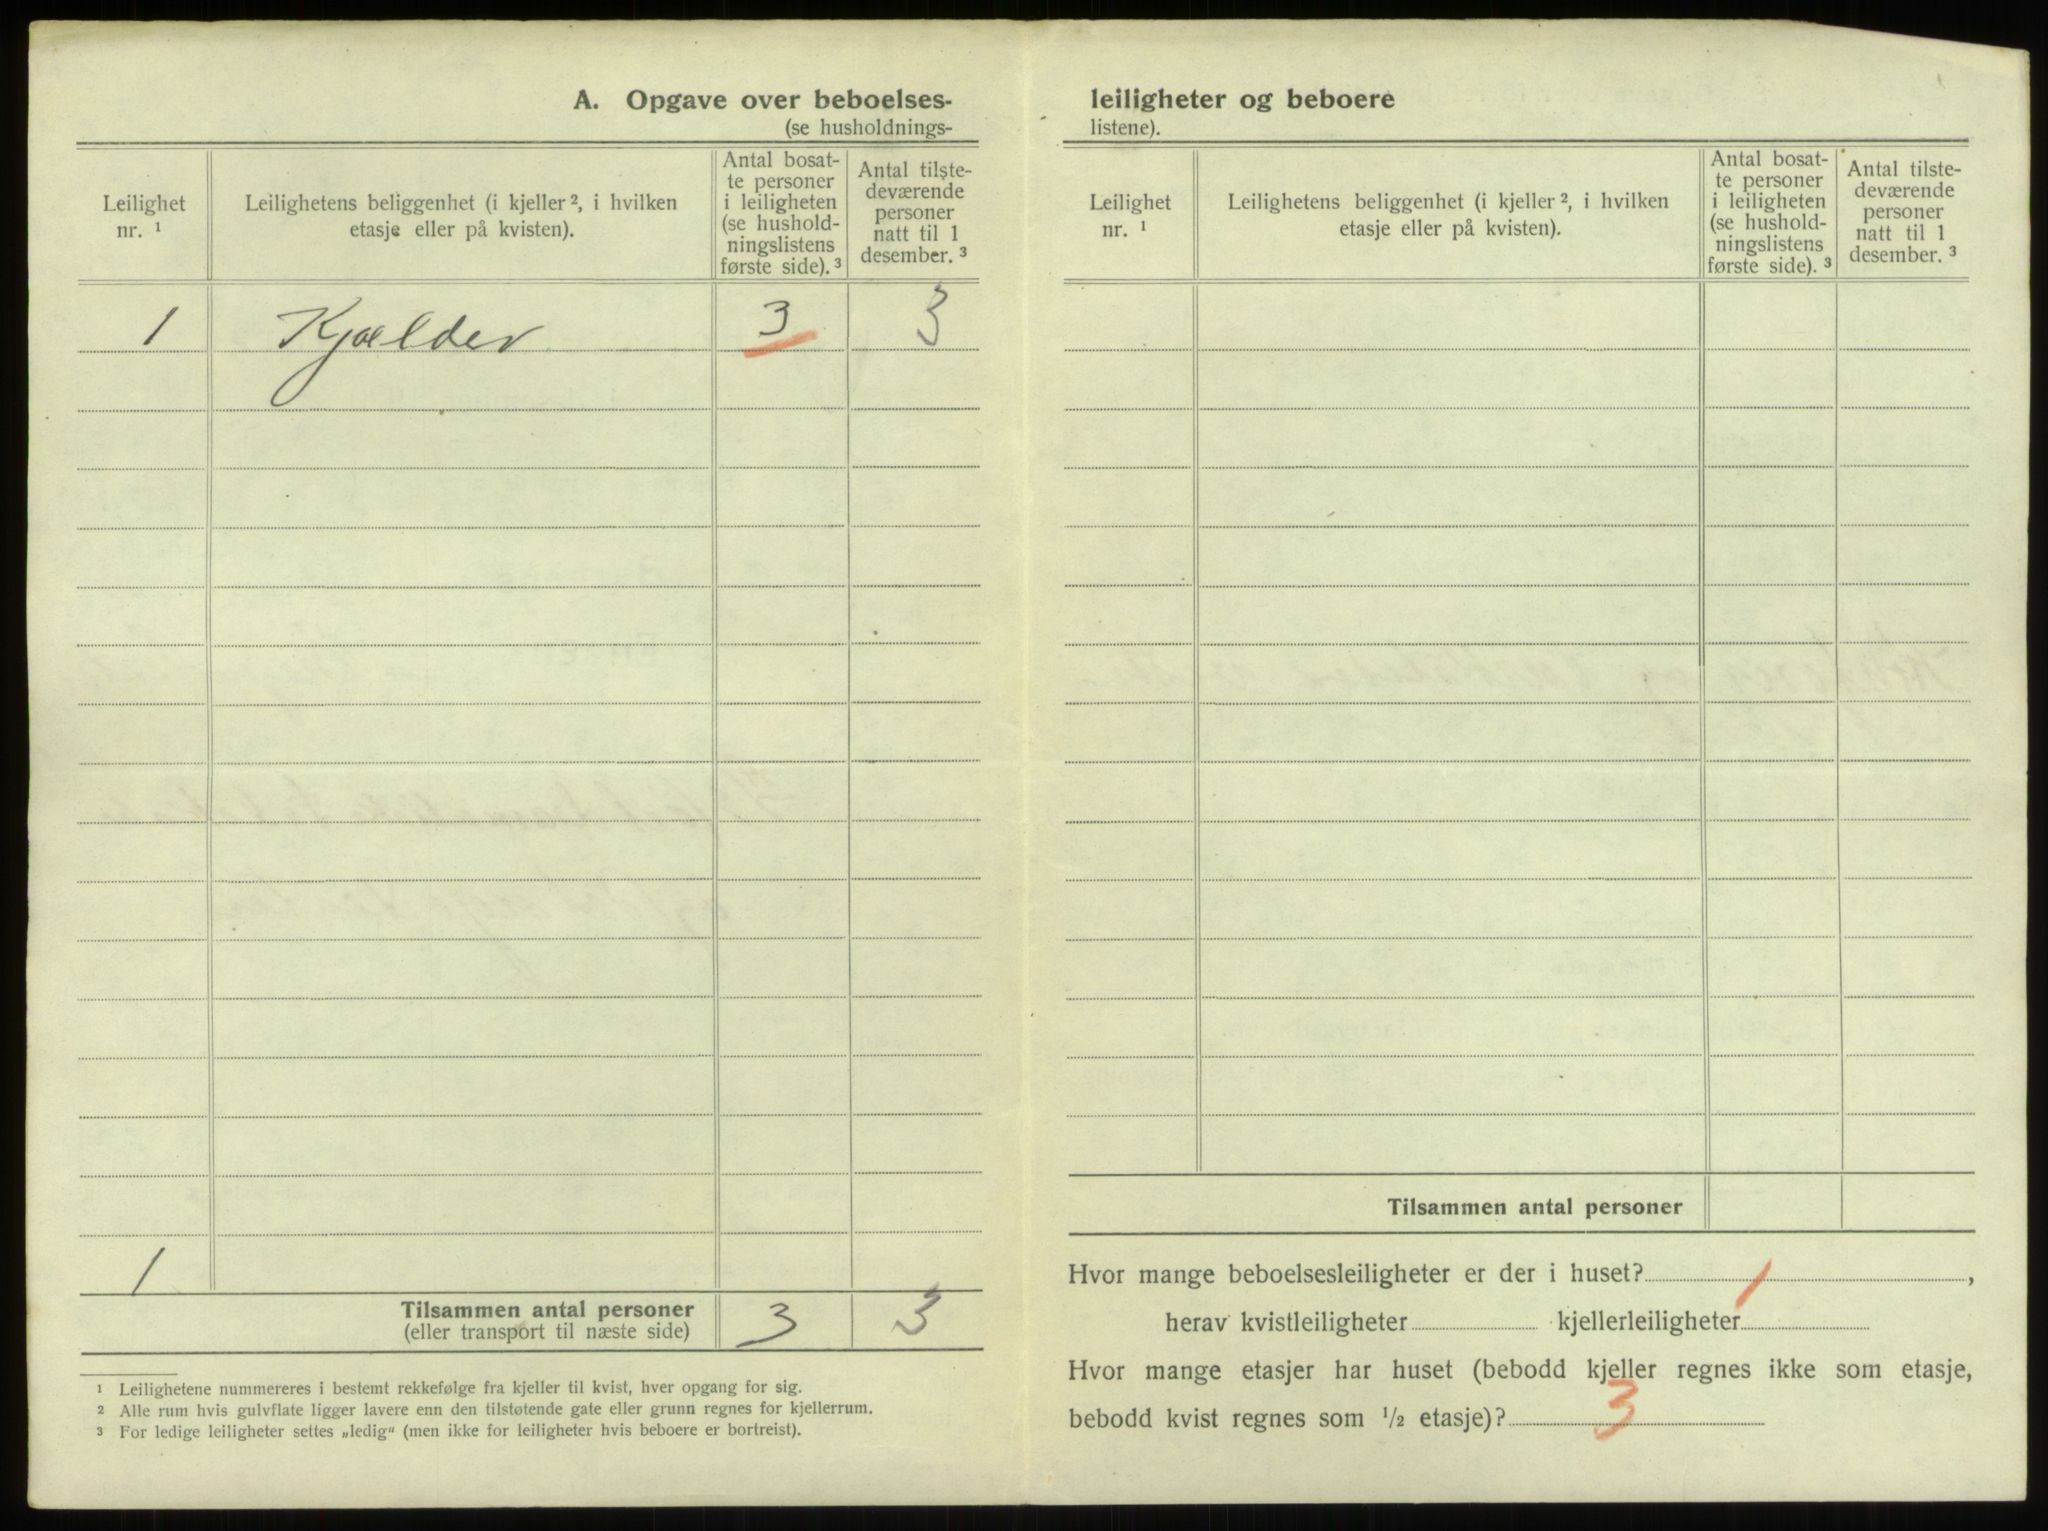 A. Opgave over beboelses-
(se husholdnings-
Leilighet
nr. ¹
Leilighetens beliggenhet (i kjeller ², i hvilken
etasje eller på kvisten).
Antal bosat-
te personer
i leiligheten
(se hushold-
ningslistens
første side). ³
Antal tilste-
deværende
personer
natt til 1
desember. ³
1 Kjælder 3 3
1
Tilsammen antal personer
(eller transport til næste side) 3 3
¹ Leilighetene nummereres i bestemt rekkefølge fra kjeller til kvist, hver opgang for sig.
² Alle rum hvis gulvflate ligger lavere enn den tilstøtende gate eller grunn regnes for kjellerrum.
³ For ledige leiligheter settes „ledig“ (men ikke for leiligheter hvis beboere er bortreist).
leiligheter og beboere
listene).
Leilighet
nr. ¹
Leilighetens beliggenhet (i kjeller ², i hvilken
etasje eller på kvisten).
Antal bosat-
te personer
i leiligheten
(se hushold-
ningslistens
første side). ³
Antal tilste-
deværende
personer
natt til 1
desember. ³
Tilsammen antal personer
Hvor mange beboelsesleiligheter er der i huset? 1,
herav kvistleiligheter kjellerleiligheter
Hvor mange etasjer har huset (bebodd kjeller regnes ikke som etasje,
bebodd kvist regnes som ½ etasje)? 3